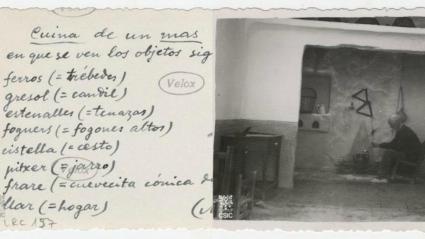 Cuina de un mas
en que se ven los objetos sig
ferros (= trébedes)
gresol (= candil)
estenalles (= tenazas)
foguers (= fogones altos)
cistella (= cesto)
pitxer (= jarro)
frare (= cuevecita cónica d
llar (= hogar)
LRC 157
Velox
CSIC